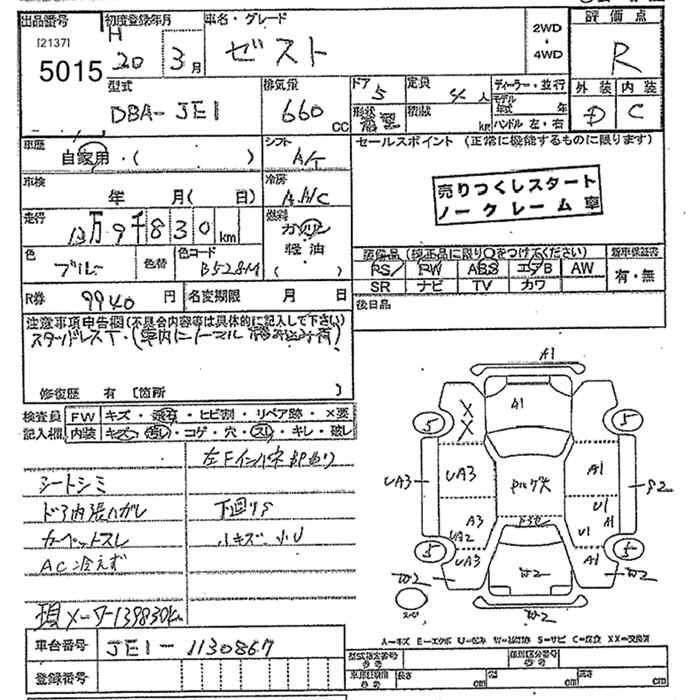 出品番号 初度登録年月 車名・グレード 評価点
[2137] H 2WD
5015 20 3月 ゼスト ・ R
4WD
型式 排気量 ドア 定員 ディーラー・並行 外装 内装
DBA-JE1 660 CC 5 4人 モデル年式 年 D C
形状 積載 kg ハンドル 左・右
車歴 シフト セールスポイント (正常に機能するものに限ります)
自家用・( ) A/T
車検 冷房 売りつくしスタート
年 月( 日) AAC ノークレーム車
走行 燃料
13万9千830km ガソリン
軽油
色 色替 色コード ( ) 装備品 (純正品に限り○をつけてください) 新車保証書
ブルー B528M PS PW ABS エアB AW 有・無
R券 9940円 名変期限 月 日 SR ナビ TV カワ
後日品
注意事項申告欄(不具合内容等は具体的に記入して下さい)
スタッドレスT・(車内にノーマル積み込み有)
修復歴 有 〔箇所 〕
検査員 FW キズ・飛石・ヒビ割・リペア跡・×要
記入欄 内装 キズ・汚レ・コゲ・穴・スレ・キレ・破レ
シートシミ
ドア内張ハガレ 下回りS
カーペットスレ 小キズ・小U
ACが冷えず
現メーター139830km
A1
A1
X
X
5 5
UA3 UA3 A1 P2
A3 U1 A1
UA2 U1
5 UA3 A1 5
W2 W2 W2
W2
A=キズ E=エクボ U=凹み W=補修跡 S=サビ C=腐食 XX=交換済
車台番号 JE1-1130867
登録番号
型式指定番号 類別区分番号
長さ cm 幅 cm 高さ cm